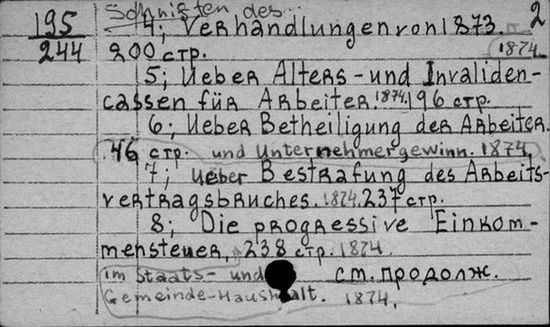 195
244
Schriften des... 2
4; Verhandlungen von 1873.
200 стр. 1874
5; Ueber Alters- und Invaliden-
cassen für Arbeiter. 1874. 196 стр.
6; Ueber Betheiligung der Arbeiter.
46 стр. und Unternehmergewinn. 1874
7; Ueber Bestrafung des Arbeits-
vertragsbruches. 1874. 237 стр.
8; Die progressive Einkom-
mensteuer, 238 стр. 1874
im Staats- und см. продолж.
Gemeinde-Haushalt. 1874.